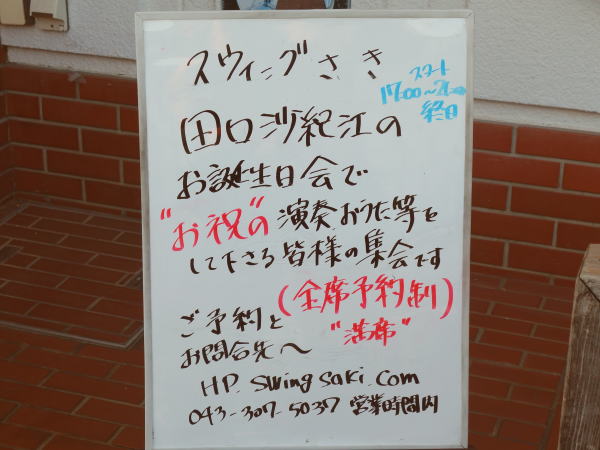 スウィングさき
スタート
17:00～21:00
終日
田口沙紀江の
お誕生日会で
"お祝"の演奏おうた等を
して下さる皆様の集会です
(全席予約制)
ご予約と
"満席"
お問合先へ
HP. swingsaki.com
043-307-5037 営業時間内